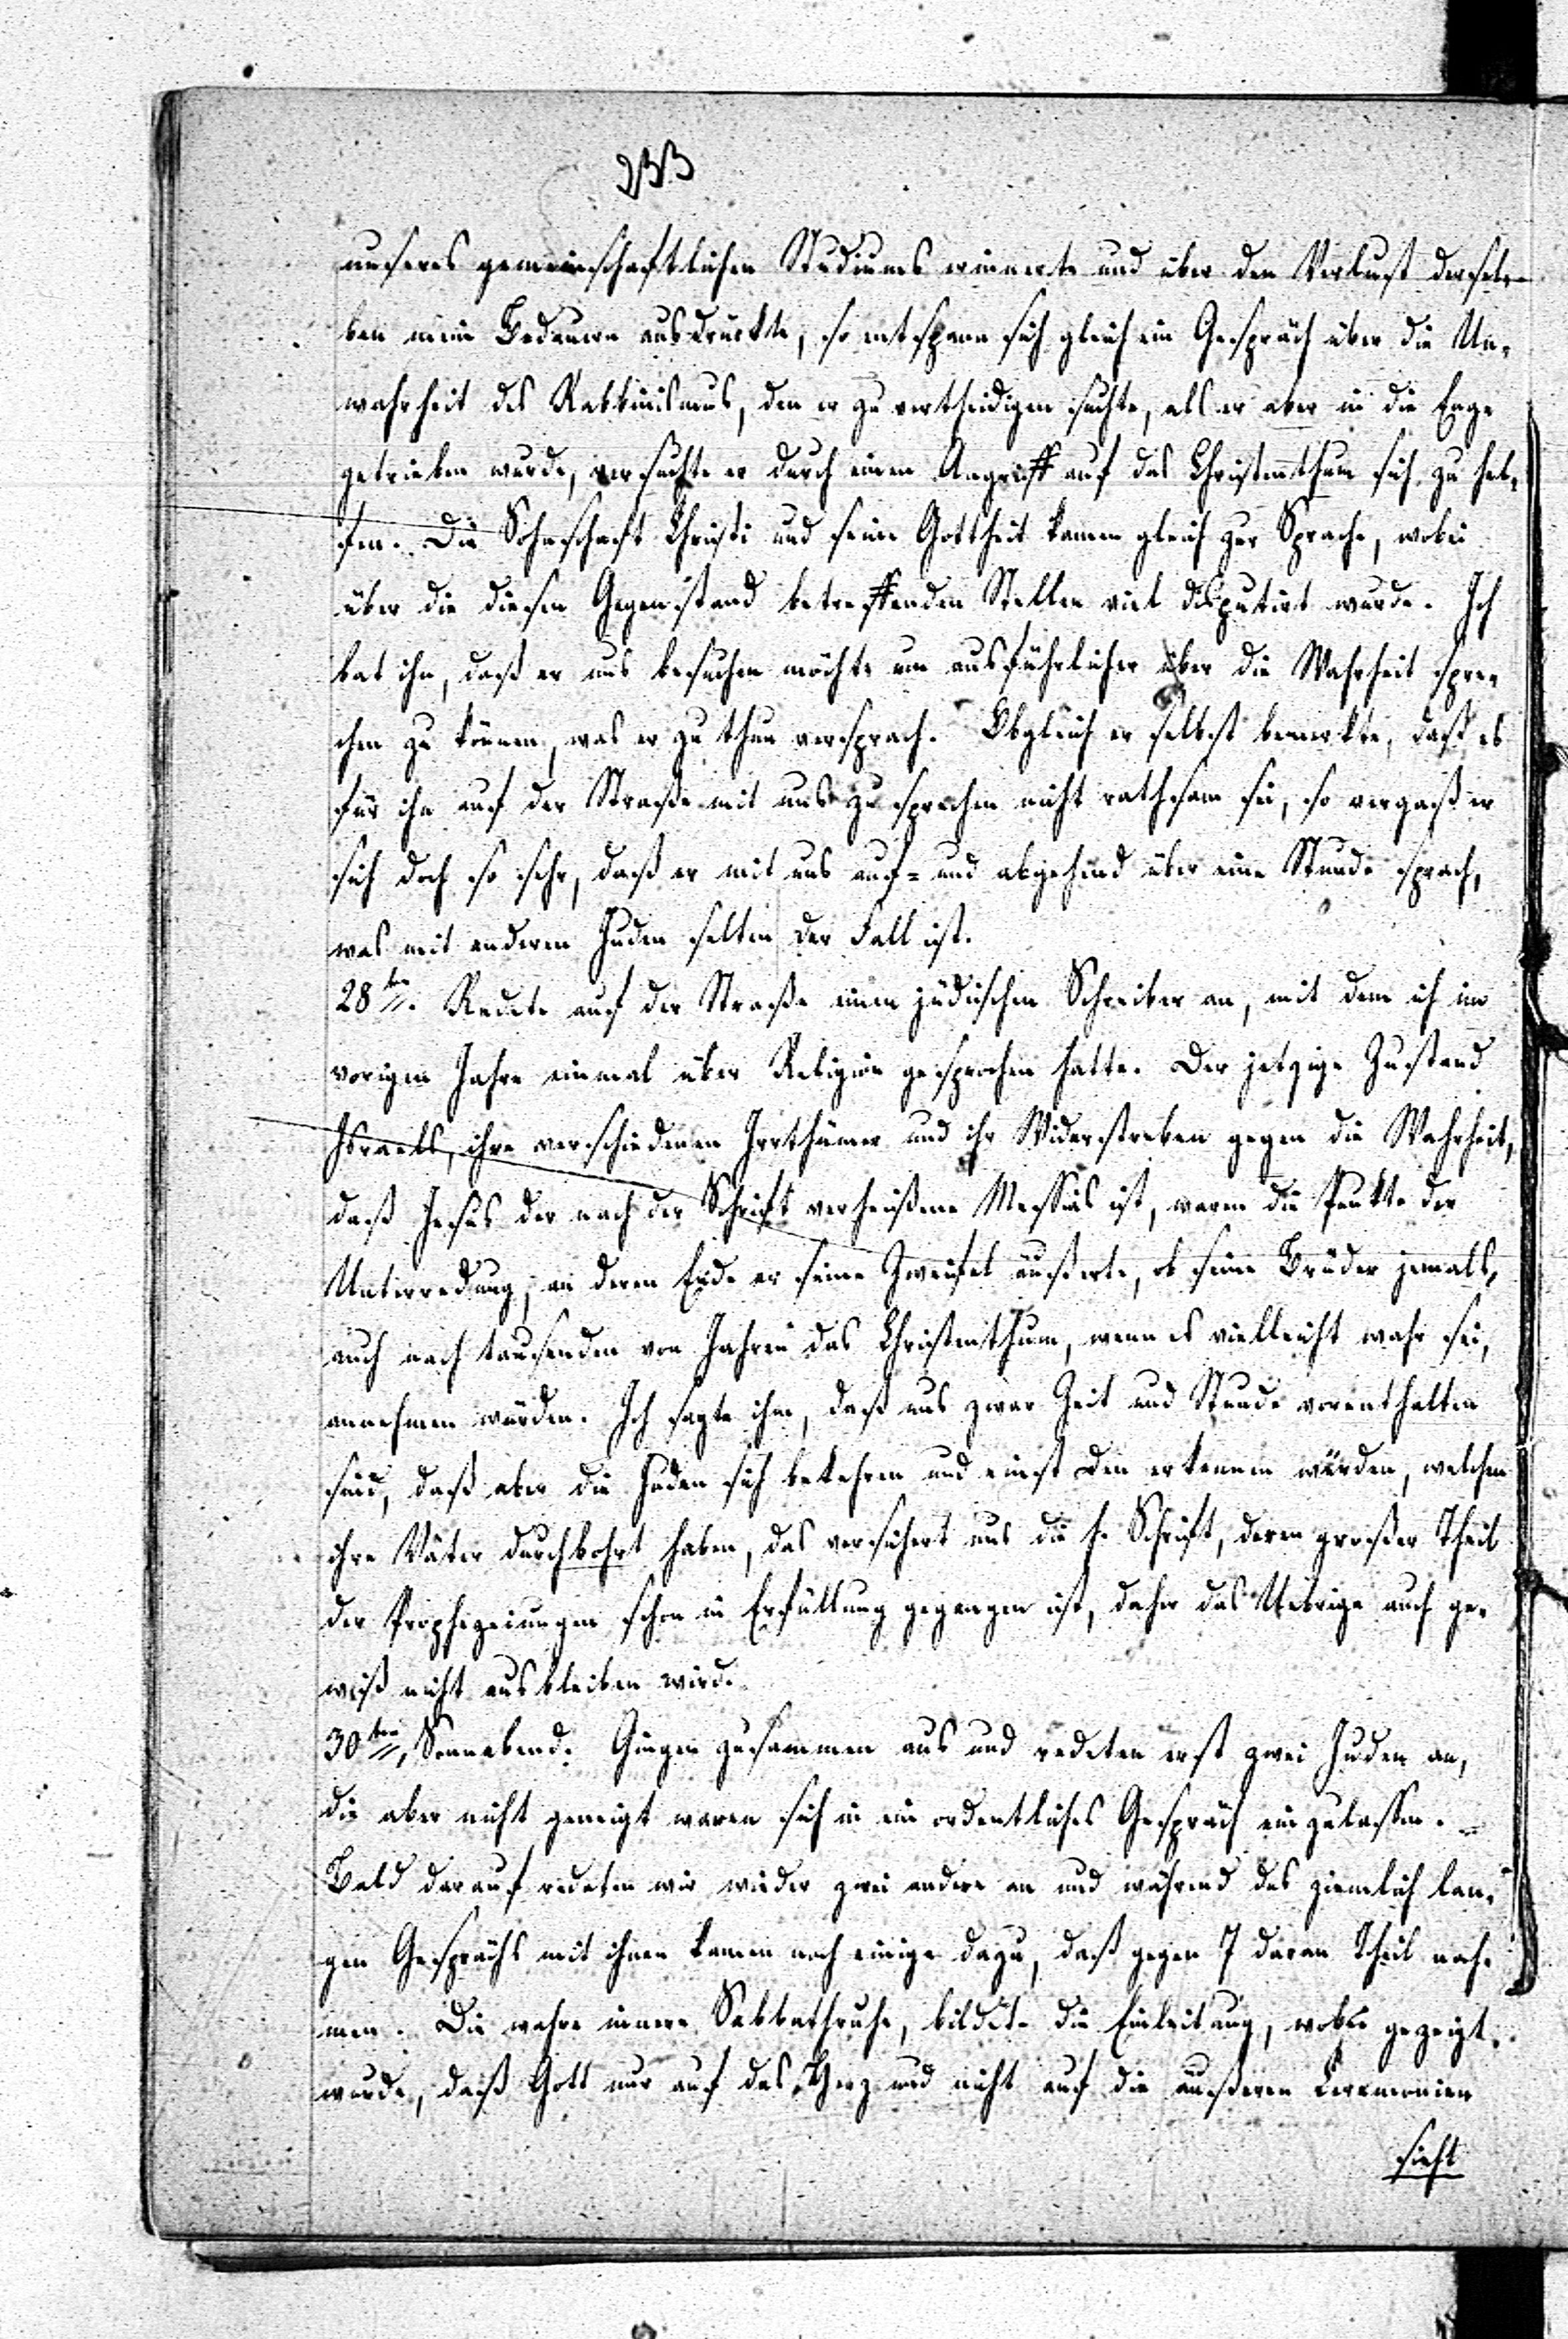 233
unseres gemeinschaftlichen Studiums erinnerte und über den Verlust dersel-
ben mein Bedauern ausdrückte, so entspann sich gleich ein Gespräch über die Un-
wahrheit des Rabbinismus, den er zu vertheidigen suchte, als er aber in die Enge
getrieben wurde, versuchte er durch einen Angriff auf das Christenthum sich zu hel-
fen. Die Sohnschaft Christi und seine Gottheit kamen gleich zur Sprache, wobei
über die diesen Gegenstand betreffenden Stellen viel disputirt wurde. Ich
bat ihn, daß er uns besuchen möchte um ausführlicher über die Wahrheit spre-
chen zu können, was er zu thun versprach. Obgleich er selbst bemerkte, daß es
für ihn auf der Straße mit uns zu sprechen nicht rathsam sei, so vergaß er
sich doch so sehr, daß er mit uns auf- und abgehend über eine Stunde sprach,
was mit anderen Juden selten der Fall ist.
28ten. Redete auf der Straße einen jüdischen Schreiber an, mit dem ich im
vorigen Jahre einmal über Religion gesprochen hatte. Der jetzige Zustand
Israels, ihre verschiedenen Irrthümer und ihr Widerstreben gegen die Wahrheit,
daß Jesus der nach der Schrift verheißene Messias ist, waren die Punkte der
Unterredung, an deren Ende er seine Zweifel äußerte, ob seine Brüder jemals,
auch nach tausenden von Jahren das Christenthum, wenn es vielleicht wahr sei,
annehmen würden. Ich sagte ihm, daß uns zwar Zeit und Stunde vorenthalten
sind, daß aber die Juden sich bekehren und einst Den erkennen würden, welchen
ihre Väter durchbohrt haben, das versichert uns die h. Schrift, deren großer Theil
der Prophezeiungen schon in Erfüllung gegangen ist, daher das Uebrige auch ge-
wiß nicht ausbleiben wird.
30ten, Sonnabend. Gingen zusammen aus und redeten erst zwei Juden an,
die aber nicht geneigt waren sich in ein ordentliches Gespräch einzulassen.
Bald darauf redeten wir wieder zwei andere an und während des ziemlich lan-
gen Gesprächs mit ihnen kamen noch einige dazu, daß gegen 7 daran Theil nah-
men. Die wahre innere Sabbathruhe, bildete die Einleitung, wobei gezeigt
wurde, daß Gott nur auf das Herz und nicht auf die äußeren Ceremonien
sieht